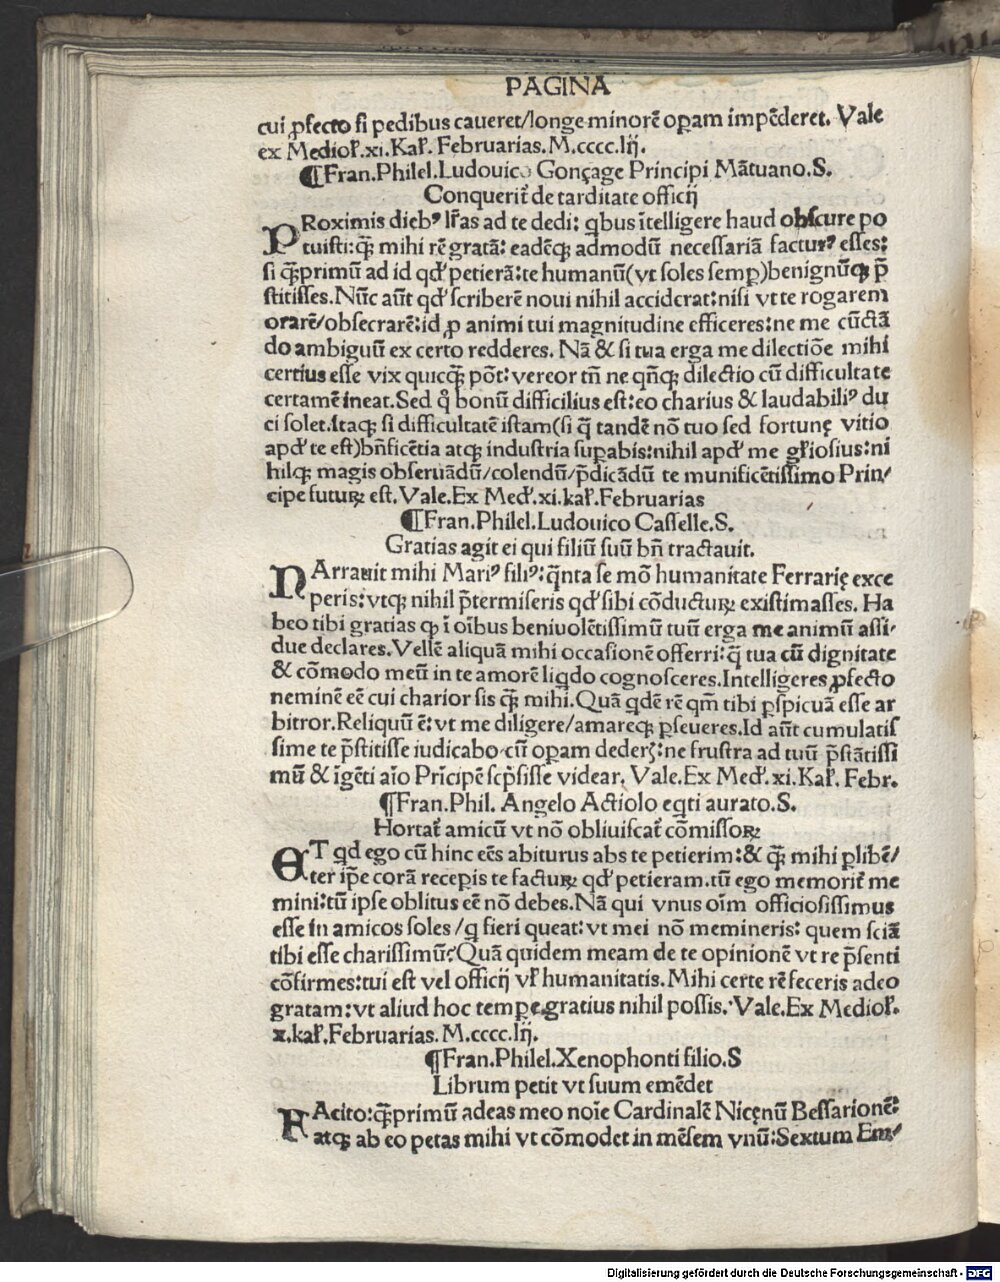 PAGINA
cui ꝓfecto ſi pedibus caueret/longe minorē oꝑam impēderet. Vale
ex Medioł.xi.Kał. Februarias. M.cccc.liij.
¶Fran.Philel.Ludouico Gonçage Principi Mātuano.S.
Conquerit᷑ de tarditate officij
PRoximis diebꝰ lr̄as ad te dedi: qbus ītelligere haud obſcure po
tuiſti:ꝙ̄ mihi rē gratā: eadēqꝫ admodū neceſſariā facturꝰ eſſes:
ſi ꝙ̄primū ad id qđ petierā:te humanū(vt ſoles ſemꝑ)benignūqꝫ p̄
ſtitiſſes.Nūc aūt qđ ſcriberē noui nihil acciderat:niſi vt te rogarem
orarē/obſecrarē:id ꝓ animi tui magnitudine efficeres:ne me cūctā
do ambiguū ex certo redderes. Nā & ſi tua erga me dilectiōe mihi
certius eſſe vix quicꝙ̄ pōt: vereor tn̄ ne qn̄qꝫ dilectio cū difficultate
certamē ineat.Sed q̊ bonū difficilius eſt:eo charius & laudabiliꝰ du
ci ſolet.Itaqꝫ ſi difficultatē iſtam(ſi q̄ tandē nō tuo ſed fortunę vitio
apđ te eſt)bn̄ficētia atqꝫ induſtria ſuꝑabis:nihil apđ me gr̄ioſius:ni
hilqꝫ magis obſeruādū/colendū/p̄dicādū te munificētiſſimo Prin/
cipe futuꝝ eſt.Vale.Ex Međ.xi.kał.Februarias
¶Fran.Philel.Ludouico Caſſelle.S.
Gratias agit ei qui filiū ſuū bn̄ tractauit.
NArrauit mihi Mariꝰ filiꝰ:q̄nta ſe mō humanitate Ferrarię exce
peris:vtqꝫ nihil p̄termiſeris qđ ſibi cōductuꝝ exiſtimaſſes. Ha
beo tibi gratias ꝙ ī oībus beniuolētiſſimū tuū erga me animū aſſi/
due declares.Vellē aliquā mihi occaſionē offerri:q̄ tua cū dignitate
& cōmodo meū in te amorē liqdo cognoſceres.Intelligeres ꝓfecto
neminē eē cui charior ſis ꝙ̄ mihi.Quā qdē rē qm̄ tibi ꝑſpicuā eſſe ar
bitror.Reliquū ē: vt me diligere/amareqꝫ ꝑſeueres.Id aūt cumulatiſ
ſime te p̄ſtitiſſe iudicabo cū oꝑam dederꝭ:ne fruſtra ad tuū p̄ſtātiſſi
mū & īgēti aīo Prīcipē ſcp̄ſiſſe videar. Vale.Ex Međ.xi.Kał. Febr.
¶Fran.Phil. Angelo Actiolo eqti aurato.S.
Hortat᷑ amicū vt nō obliuiſcat᷑ cōmiſſoꝝ
ET qđ ego cū hinc eēs abiturus abs te petierim:& ꝙ̄ mihi ꝑlibē/
ter ip̄e corā receꝑis te factuꝝ qđ petieram.tū ego memorit̕ me
mini:tū ipſe oblitus eē nō debes.Nā qui vnus oīm officioſiſſimus
eſſe in amicos ſoles/q fieri queat: vt mei nō memineris: quem ſciā
tibi eſſe chariſſimū?Quā quidem meam de te opinionē vt re p̄ſenti
cōfirmes:tui eſt vel officij vł humanitatis.Mihi certe rē feceris adeo
gratam:vt aliud hoc tempe gratius nihil poſſis. Vale.Ex Medioł.
x.kał.Februarias. M.cccc.liij.
¶Fran.Philel.Xenophonti filio.S
Librum petit vt ſuum emēdet
FAcito:ꝙ̄primū adeas meo noīe Cardinalē Nicęnū Beſſarionē:
atqꝫ ab eo petas mihi vt cōmodet in mēſem vnū:Sextum Em/
Digitalisierung gefördert durch die Deutsche Forschungsgemeinschaft - DFG